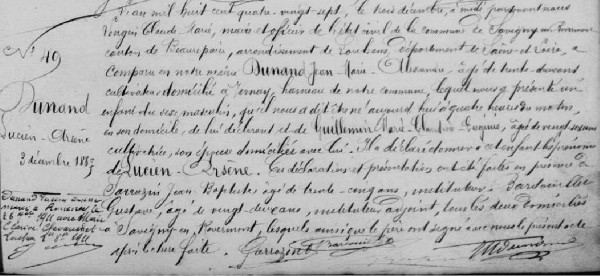 L'an mil huit cent quatre-vingt-sept, le trois décembre, à midi pardevant nous
Claude Marie, maire et officier de l'état civil de la commune de Savigny en Revermont
canton de Beaurepaire, arrondissement de Louhans, département de Saône et Loire, a
comparu en notre mairie Dunand Jean-Marie-Alexandre, âgé de trente-deux ans
cultivateur domicilié à hameau de notre commune, lequel nous a présenté un
enfant du sexe masculin, qu'il nous a dit être né aujourd'hui à quatre heures du matin,
en son domicile, de lui déclarant et de Guillemin Marie Eugénie, âgée de vingt
cultivatrice, son épouse domiciliée avec lui. Il a déclaré donner à cet enfant les prénoms
de Lucien-Arsène. Ces déclaration et présentation ont été faites en présence de
Sarrazin Jean Baptiste, âgé de trente-cinq ans, instituteur et
Gustave, âgé de vingt-deux ans, instituteur adjoint, tous les deux domiciliés
à Savigny-en-Revermont, lesquels ainsi que le père ont signé avec nous le présent acte
après lecture faite. Sarrazin
N° 49
Dunand
Lucien-Arsène
3 décembre 1887
Dunand Lucien Arsène
marié à
26 1911 avec Marie
1911